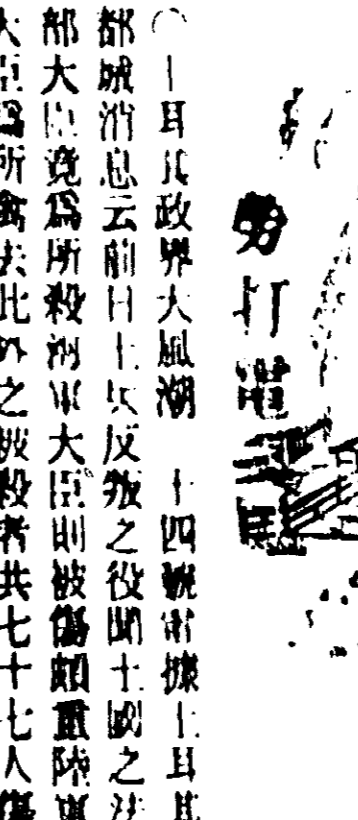 勞打電
○土耳其政界大風潮 十四號電據土耳其
都城消息云前日土兵反叛之役聞土國之法
部大臣竟爲所殺海軍大臣則被傷頗重陸軍
大臣爲所禽去此外之被殺者共七十七人傷